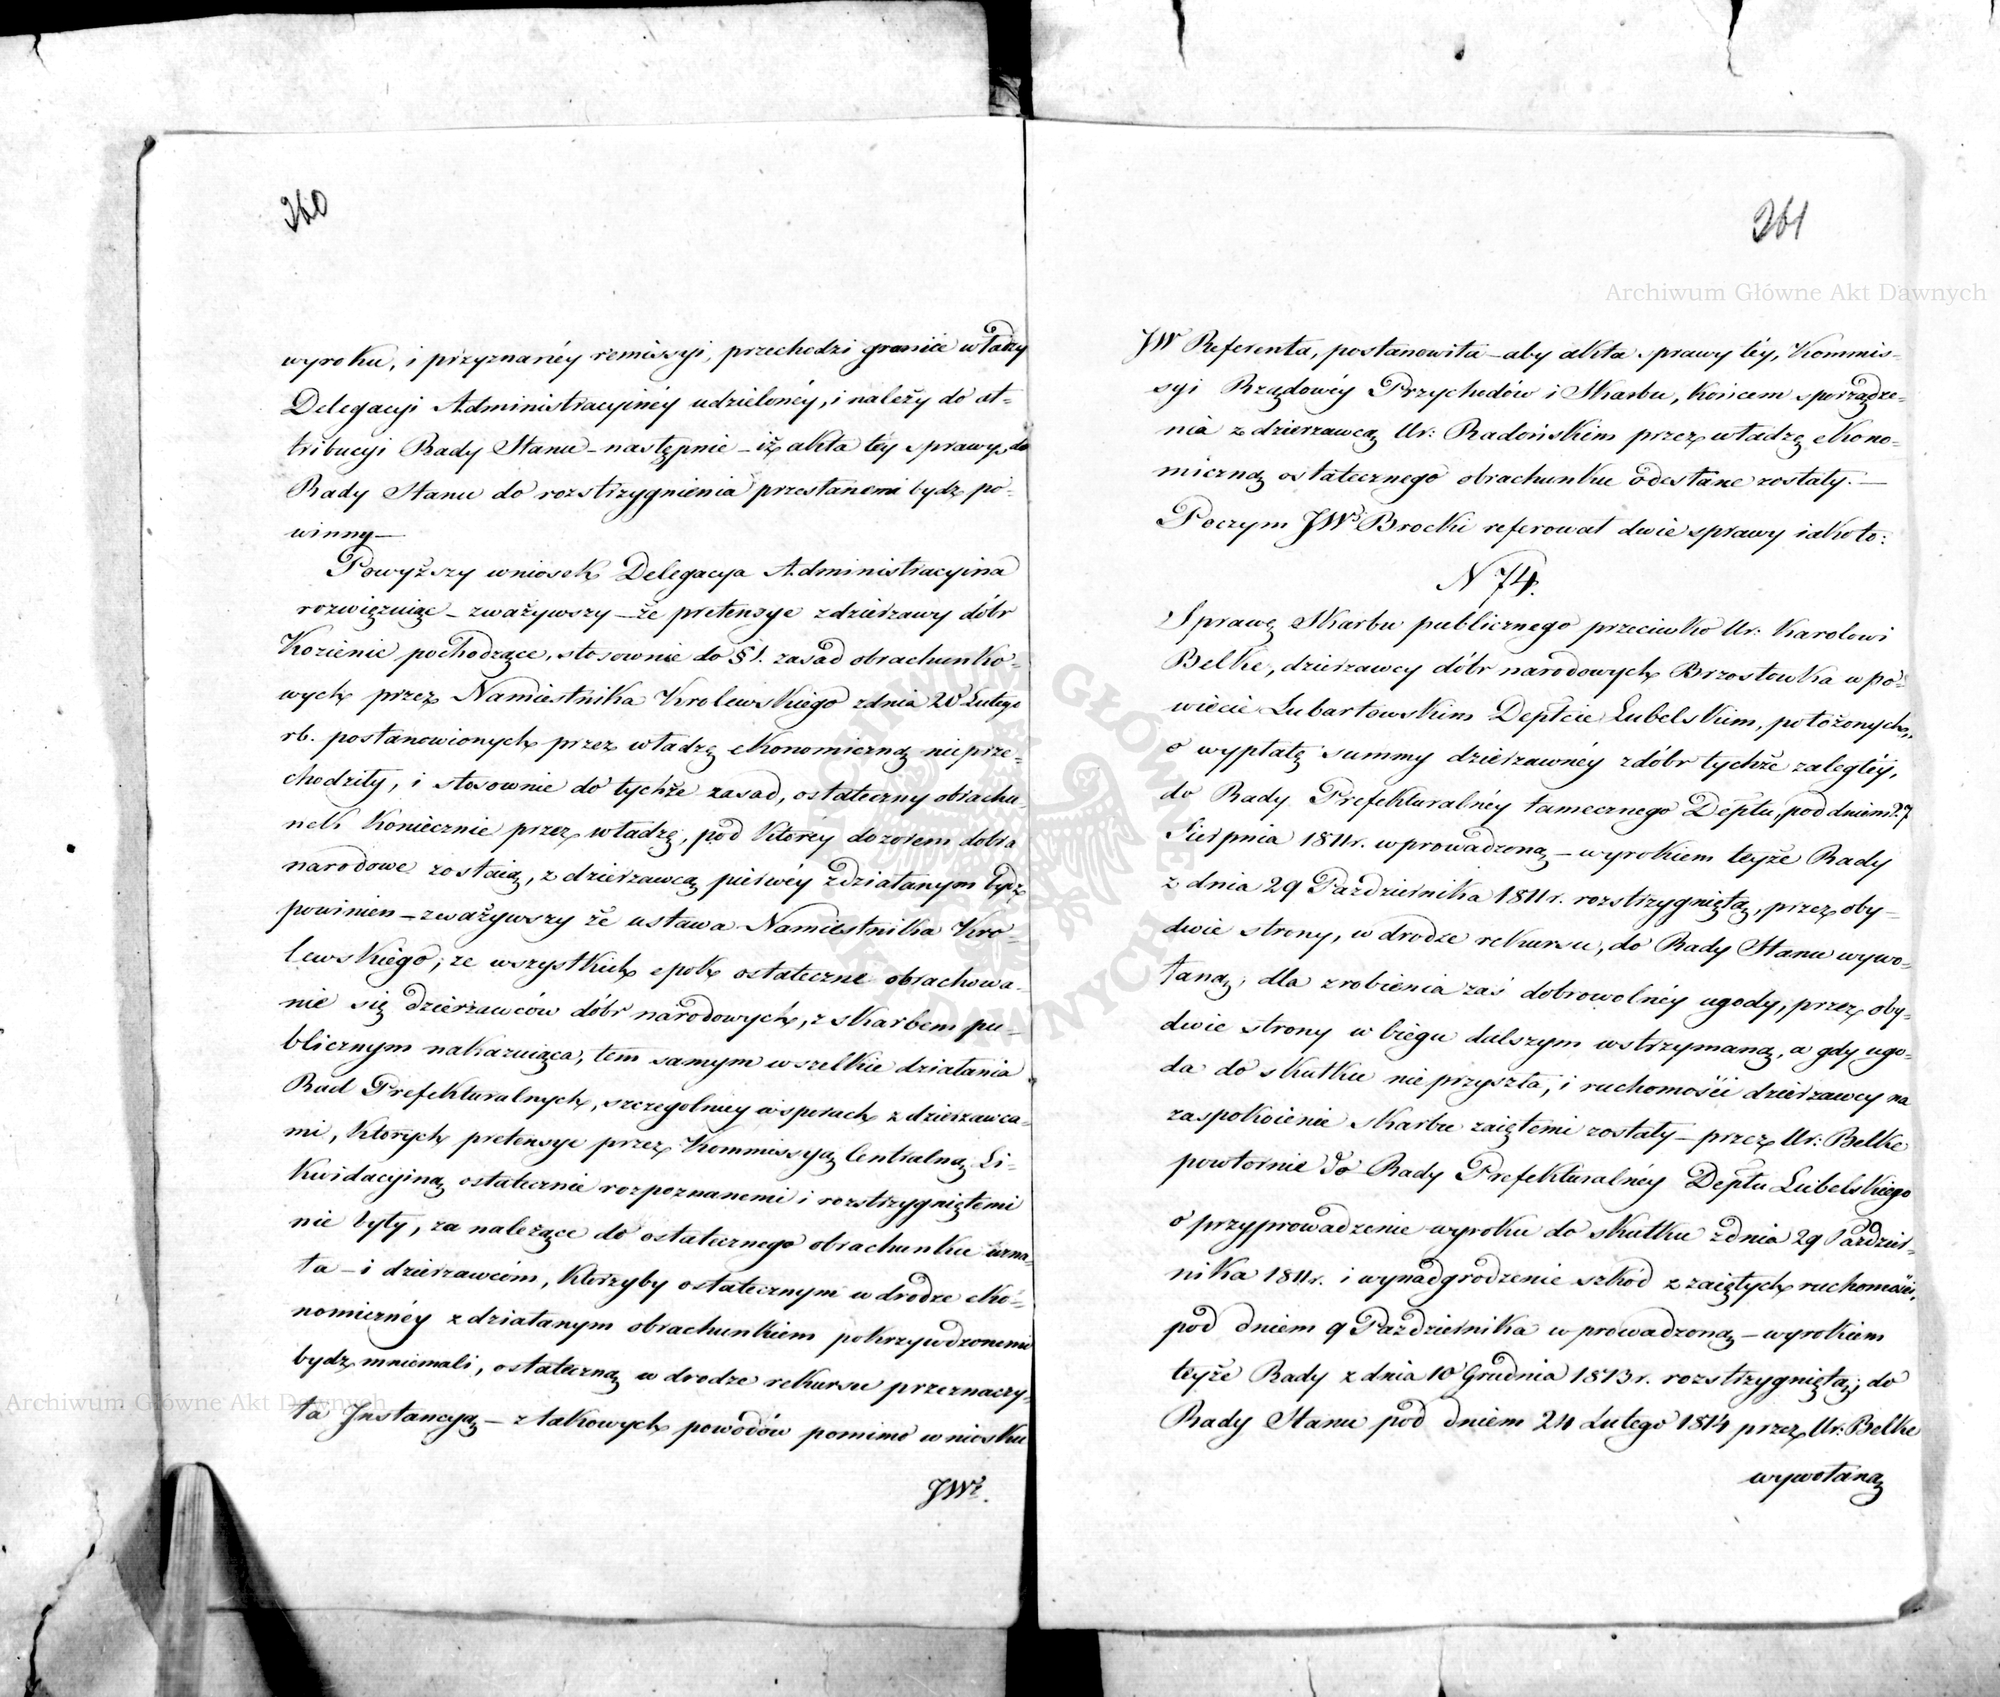 260
wyroku, i przyznanéy remissyi, przechodzi granice władzy
Delegacyi Administracyinéy udzielonéy, i należy do at-
tribucyi Rady Stanu – następnie – iż akta téy sprawy, do
Rady Stanu do rozstrzygnienia przesłanemi bydź po-
winny —
Powyższy wniosek Delegacya Administracyina
rozwięzuiąc – zważywszy – że pretensye z dzierzawy dóbr
Kozienic pochodzące, stosownie do § 1. zasad obrachunko-
wych przez Namiestnika Krolewskiego z dnia 28 Lutego
rb. postanowionych przez władzę ekonomiczną nieprze-
chodziły, i stosownie do tychże zasad, ostateczny obrachu-
nek koniecznie przez władzę, pod któréy dozorem dobra
narodowe zostaią, z dzierzawcą pierwéy zdziałanym bydź
powinien – zważywszy że ustawa Namiestnika Kro-
lewskiego, ze wszystkich epok ostateczne obrachowa-
nie się dzierzawców dóbr narodowych, z skarbem pu-
blicznym nakazuiąca, tem samym wszelkie działania
Rad Prefekturalnych, szczegolniey w sporach z dzierzawca-
mi, których pretensye przez Kommissyą Centralną Li-
kwidacyiną ostatecznie rozpoznanemi i rozstrzygniętemi
nie były, za należące do ostatecznego obrachunku uzna-
ła – i dzierzawcom, którzyby ostatecznym w drodze eko-
nomicznéy zdziałanym obrachunkiem pokrzywdzonemi
bydź mniemali, ostateczną w drodze rekursu przeznaczy-
ła Instancyą – z takowych powodów pomimo wniosku
JWo.
261
JW Referenta, postanowiła – aby akta sprawy téy, Kommis-
syi Rządowéy Przychodów i Skarbu, końcem sporządze-
nia z dzierzawcą Ur: Radońskim przez władzę ekono-
miczną ostatecznego obrachunku odesłane zostały. —
Poczym JWo Brocki referował dwie sprawy iako to:
N 74.
Sprawę Skarbu publicznego przeciwko Ur: Karolowi
Belke, dzierzawcy dóbr narodowych Brzostowka w po-
wiecie Lubartowskim Deptcie Lubelskim, położonych,
o wypłatę summy dzierzawnéy z dóbr tychże zaległéy,
do Rady Prefekturalnéy tamecznego Deptu, pod dniem 27
Sierpnia 1811 r. wprowadzoną – wyrokiem teyże Rady
z dnia 29 Pazdziernika 1811 r. rozstrzygniętą, przez oby-
dwie strony, w drodze rekursu, do Rady Stanu wywo-
łaną, dla zrobienia zaś dobrowolnéy ugody, przez oby-
dwie strony w biegu dalszym wstrzymaną, a gdy ugo-
da do skutku nie przyszła, i ruchomości dzierzawcy na
zaspokoienie skarbu zaiętemi zostały – przez Ur: Belke
powtornie do Rady Prefekturalnéy Deptu Lubelskiego
o przyprowadzenie wyroku do skutku z dnia 29 Pazdzier-
nika 1811 r. i wynadgrodzenie szkód z zaiętych ruchomości,
pod dniem 9 Pazdziernika wprowadzoną – wyrokiem
teyże Rady z dnia 10 Grudnia 1813 r. rozstrzygniętą; do
Rady Stanu pod dniem 24 Lutego 1814 przez Ur: Belke
wywołaną
Archiwum Główne Akt Dawnych
Archiwum Główne Akt Dawnych
ARCHIWUM GŁÓWNE AKT DAWNYCH